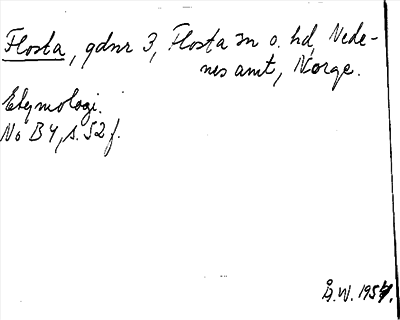 Flosta, gdnr 3, Flosta sn o. hd, Nede-
nes amt, Norge.
Etymologi.
No B4, s. 52 f.
Å.W. 1954.